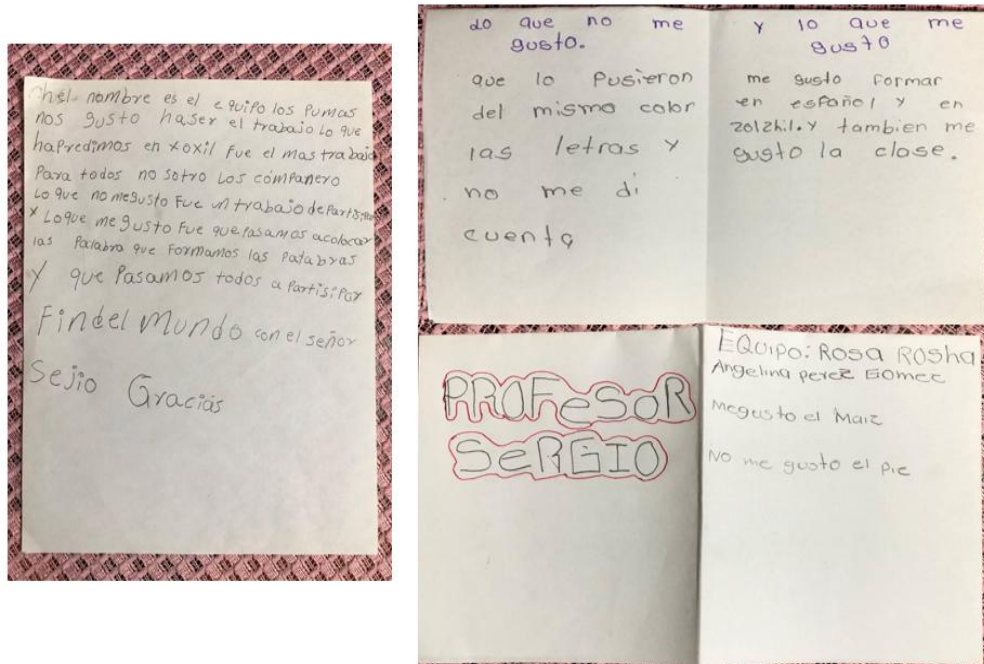 hel nombre es el equipo los Pumas
nos gusto haser el trabajo lo que
hapredimos en xoxil fue el mas trabajo
Para todos no sotro Los compañero
Lo que no megusto fue un trabajo de
x Loque me gusto fue que pasamos acolocar
las Palabra que Formamos las Patabras
Y que Pasamos todos a Partisipar
Findel Mundo con el señor
Sejio Gracias
Lo que no me
gusto.
que lo Pusieron
del mismo color
las letras y
no me di
cuenta
y lo que me
gusto
me gusto Formar
en español y en
zolzhil.y tambien me
gusto la clase.
PROFeSoR
SeRGIO
EQUIPO: ROSA ROSHA
Angelina perez Gomez
Megusto el Maiz
No me gusto el pie